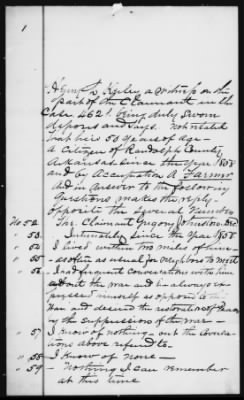 1
a witness on the
part of the Claimant in the
Case 4621. being duly sworn
deposes and says. Not related
that he is 58 years of age -
a Citizen of Randolph County
Arkansas since the year 1858
and by Occupation A Farmer
And in answer to the following
Questions makes the reply
opposite the several Numbers
No 52. The Claimant Gregory
" 53. Intimately since the year 1858
" 54 I lived within two miles of him -
" 55 - as often as usual for neighbors to meet
" 56 - In frequent conversations with him
about the war and he always ex-
pressed himself as opposed to the
war and desired the restoration of
by the suppression of the war -
" 57 I know of nothing - but the Conversa-
tions above refered to -
" 58 I Know of none -
" 59 - Nothing I can remember
at this time